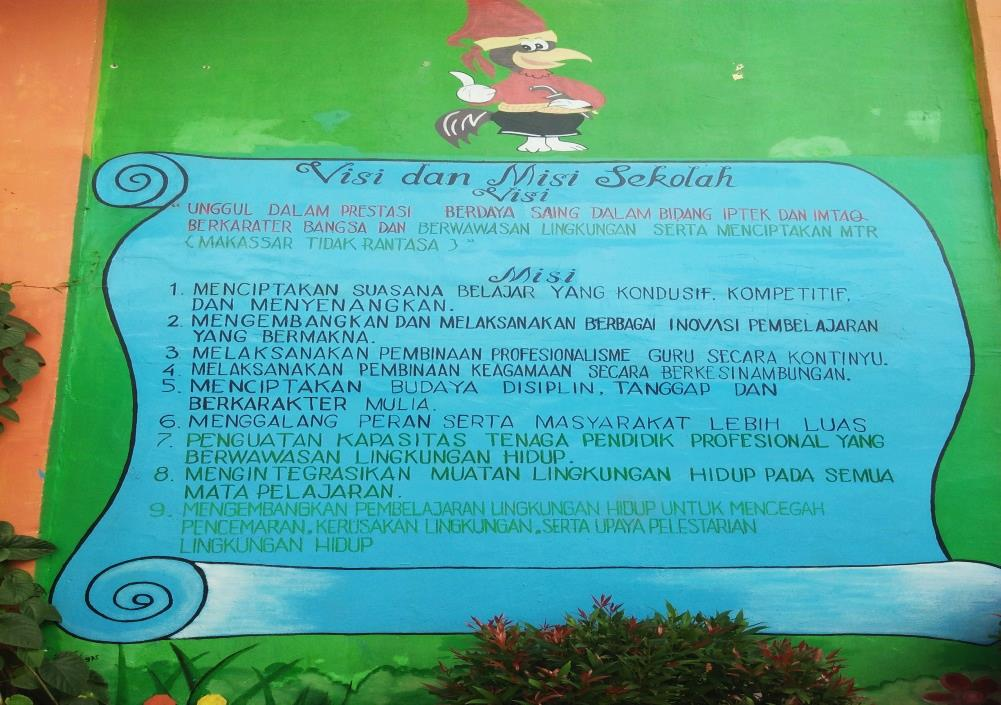 Visi dan Misi Sekolah
Visi
"UNGGUL DALAM PRESTASI BERDAYA SAING DALAM BIDANG IPTEK DAN IMTAQ
BERKARATER BANGSA DAN BERWAWASAN LINGKUNGAN SERTA MENCIPTAKAN MTR
(MAKASSAR TIDAK RANTASA)"
Misi
1. MENCIPTAKAN SUASANA BELAJAR YANG KONDUSIF. KOMPETITIF,
DAN MENYENANGKAN.
2. MENGEMBANGKAN DAN MELAKSANAKAN BERBAGAI INOVASI PEMBELAJARAN
YANG BERMAKNA.
3 MELAKSANAKAN PEMBINAAN PROFESIONALISME GURU SECARA KONTINYU.
4. MELAKSANAKAN PEMBINAAN KEAGAMAAN SECARA BERKESINAMBUNGAN.
5. MENCIPTAKAN BUDAYA DISIPLIN, TANGGAP DAN
BERKARAKTER MULIA.
6. MENGGALANG PERAN SERTA MASYARAKAT LEBIH LUAS
7. PENGUATAN KAPASITAS TENAGA PENDIDIK PROFESIONAL YANG
BERWAWASAN LINGKUNGAN HIDUP.
8. MENGINTEGRASIKAN MUATAN LINGKUNGAN HIDUP PADA SEMUA
MATA PELAJARAN.
9. MENGEMBANGKAN PEMBELAJARAN LINGKUNGAN HIDUP UNTUK MENCEGAH
PENCEMARAN, KERUSAKAN LINGKUNGAN, SERTA UPAYA PELESTARIAN
LINGKUNGAN HIDUP